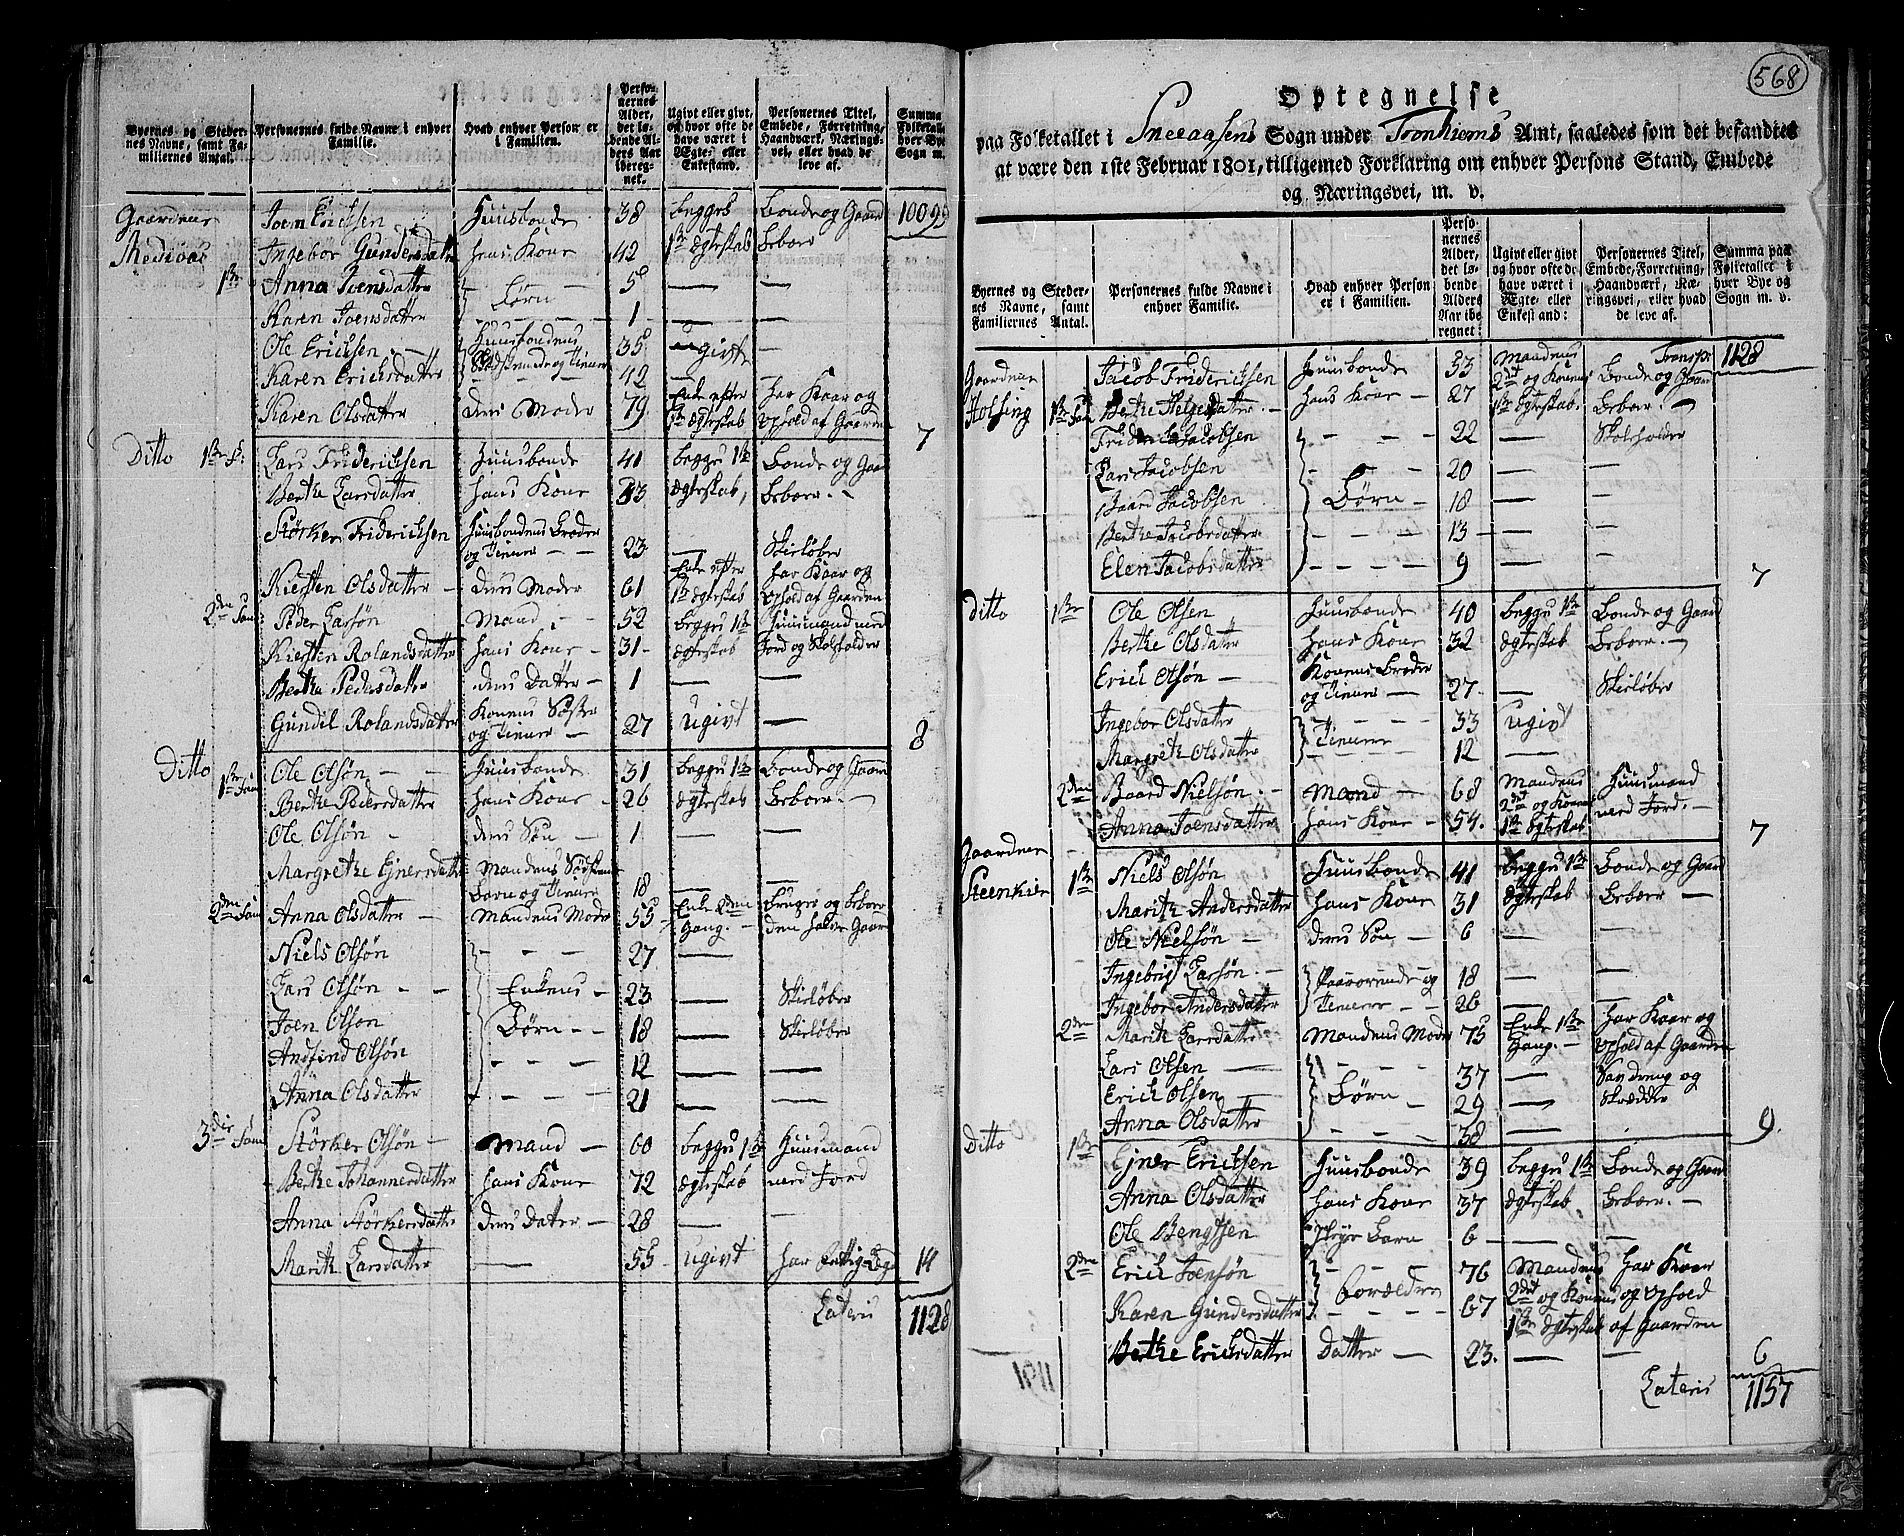 Byernes og Stedernes Navne, samt Familiernes Antal.
Personernes fulde Navne i enhver Familie.
Hvad enhver Person er i Familien.
Personernes Alder, det løbende Alders Aar iberegnet.
Ugivt eller givt, og hvor ofte de have været i Ægte- eller Enkestand.
Personernes Titel, Embede, Forretning, Haandværk, Næringsvei, eller hvad de leve af.
Summa Folketallet hver Bye Sogn m.
Gaardene Joen Erichsen Huusbonde 38 begges Bonde og Gaard 1099
Ingebor Gundersdatter hans Kone 42 1ste Ægteskab Beboer
1ste Anna Joensdatter Børn 5 — —
Karen Joensdatter 1 — —
Ole Erichsen Huusbondens 35 ugivte
Karen Erichsdatter Sødskende og Tiener 42 —
Karen Olsdatter deres Moder 79 Enke efter 1ste Ægteskab har Kaar og Ophold af Gaarden 7
Ditto 1ste F. Lars Friderichsen Huusbonde 41 begge 1ste Bonde og Gaard
Berthe Larsdatter hans Kone 33 Ægteskab Beboer
Størker Friderichsen Huusbondens Broder og Tiener 23 — Skieløber
Kiersten Olsdatter deres Moder 61 Enke efter 1ste Ægteskab har Kaar og Ophold af Gaarden
2den Fam Peder Larsøn Mand 52 begge 1ste Huusmand med
Kiersten Rolandsdatter hans Kone 31 Ægteskab Jord og Skolholder
Berthe Pedersdatter deres Datter 1 — —
Gundil Rolandsdatter Konens Søster og Tiener 27 ugivt — 8
Ditto 1ste Fam Ole Olsøn Huusbonde 31 begge 1ste Bonde og Gaard
Berthe Pedersdatter hans Kone 26 Ægteskab Beboer
Ole Olsøn deres Søn 1 — —
Margrethe Ejnersdatter Mandens Sødskene Barn og Tiener 18 — —
2den Fam Anna Olsdatter Mandens Moder 55 Enke 2den Gang Bruger og beboer den halve Gaard
Niels Olsøn 27 —
Lars Olsøn Enkens 23 — Skieløber
Joen Olson Børn 18 — Skieløber
Andfind Olsøn 12 — —
Anna Olsdatter 21 — —
3die Fam Størker Olsøn Mand 60 begge 1ste Huusmand
Berthe Johannesdatter hans Kone 72 Ægteskab med Jord
Anna Størkersdatter deres Datter 28 — —
Marith Larsdatter — 55 ugivt har Fattig Legd 14
Lateris 1128
568
Optegnelse
paa Folketallet i Sneeaasens Sogn under Tronhiems Amt, saaledes som det befandtes
at være den 1ste Februar 1801, tilligemed Forklaring om enhver Persons Stand, Embede
og Næringsvei, m. v.
Byernes og Stedernes Navne, samt Familiernes Antal.
Personernes fulde Navne i enhver Familie.
Hvad enhver Person er i Familien.
Personernes Alder, det løbende Alders Aar iberegnet:
Ugivt eller givt og hvor ofte de have været i Ægte- eller Enkestand:
Personernes Titel, Embede, Forretning, Haandværk, Næringsvei, eller hvad de leve af.
Summa paa Folketallet i hver Bye og Sogn m. v.
Transp: 1128
Gaardene Jacob Friderichsen Huusbonde 53 Mandens 2det og Konens Bonde og Gaard
1ste Fam Berthe Helgesdatter hans Kone 27 1ste Ægteskab Beboer
Friderich Jacobsen 22 — Skolholder
Lars Jacobsen 20 — —
Baard Jacobsen Børn 18 — —
Berthe Jacobsdatter 13 — —
Elen Jacobsdatter 9 — — 7
Ditto 1ste Ole Olsen Huusbonde 40 begge 1ste Bonde og Gaard
Berthe Olsdatter hans Kone 32 Ægteskab Beboer
Erich Olsøn Konens Broder og Tiener 27 — Skieløber
Ingebor Olsdatter Tienere 33 ugivt
Margreth Olsdatter 12 —
2den Baard Nielsøn Mand 68 Mandens 2det og Konens Huusmand
Anna Joensdatter hans Kone 54 1ste Ægteskab med Jord 7
Gaardene
Steenkier 1ste Niels Olsøn Huusbonde 41 begge 1ste Bonde og Gaard
Marith Andersdatter hans Kone 31 Ægteskab Beboer
Ole Nielsøn deres Søn 6 — —
Ingebrigt Larsøn 18 — —
Ingebor Andersdatter Tienere 26 —
2den Marith Larsdatter Mandens Moder 75 Enke 1ste Gang har Kaar og Ophold af Gaarden
Lars Olsen 37 —
Erich Olsen Børn 29 — Skrædder
Anna Olsdatter 38 — 9
Ditto 1ste Ejner Erichsen Huusbonde 39 begge 1ste Bonde og Gaard
Anna Olsdatter hans Kone 37 Ægteskab Beboer
Ole Bengtsen Barn 6 — —
2den Erich Joensøn Forældre 76 Mandens 2det og Konens har Kaar og Ophold
Karen Gundersdatter 67 1ste Ægteskab af Gaarden
Berthe Erichsdatter Datter 23 — — 6
Lateris 1157